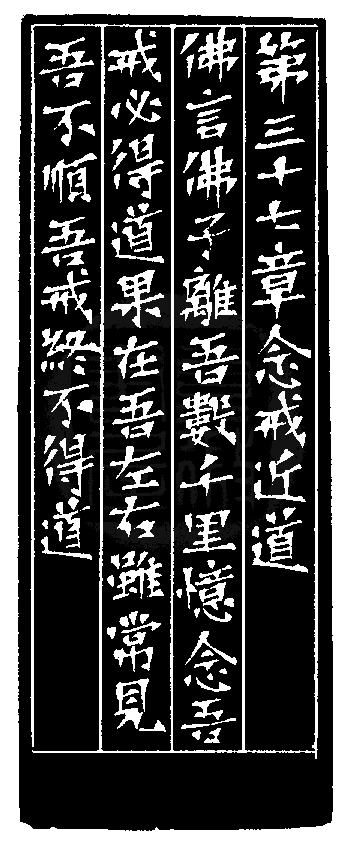 第三十七章念戒近道
佛言佛子離吾數千里憶念吾
戒必得道果在吾左右雖常見
吾不順吾戒終不得道